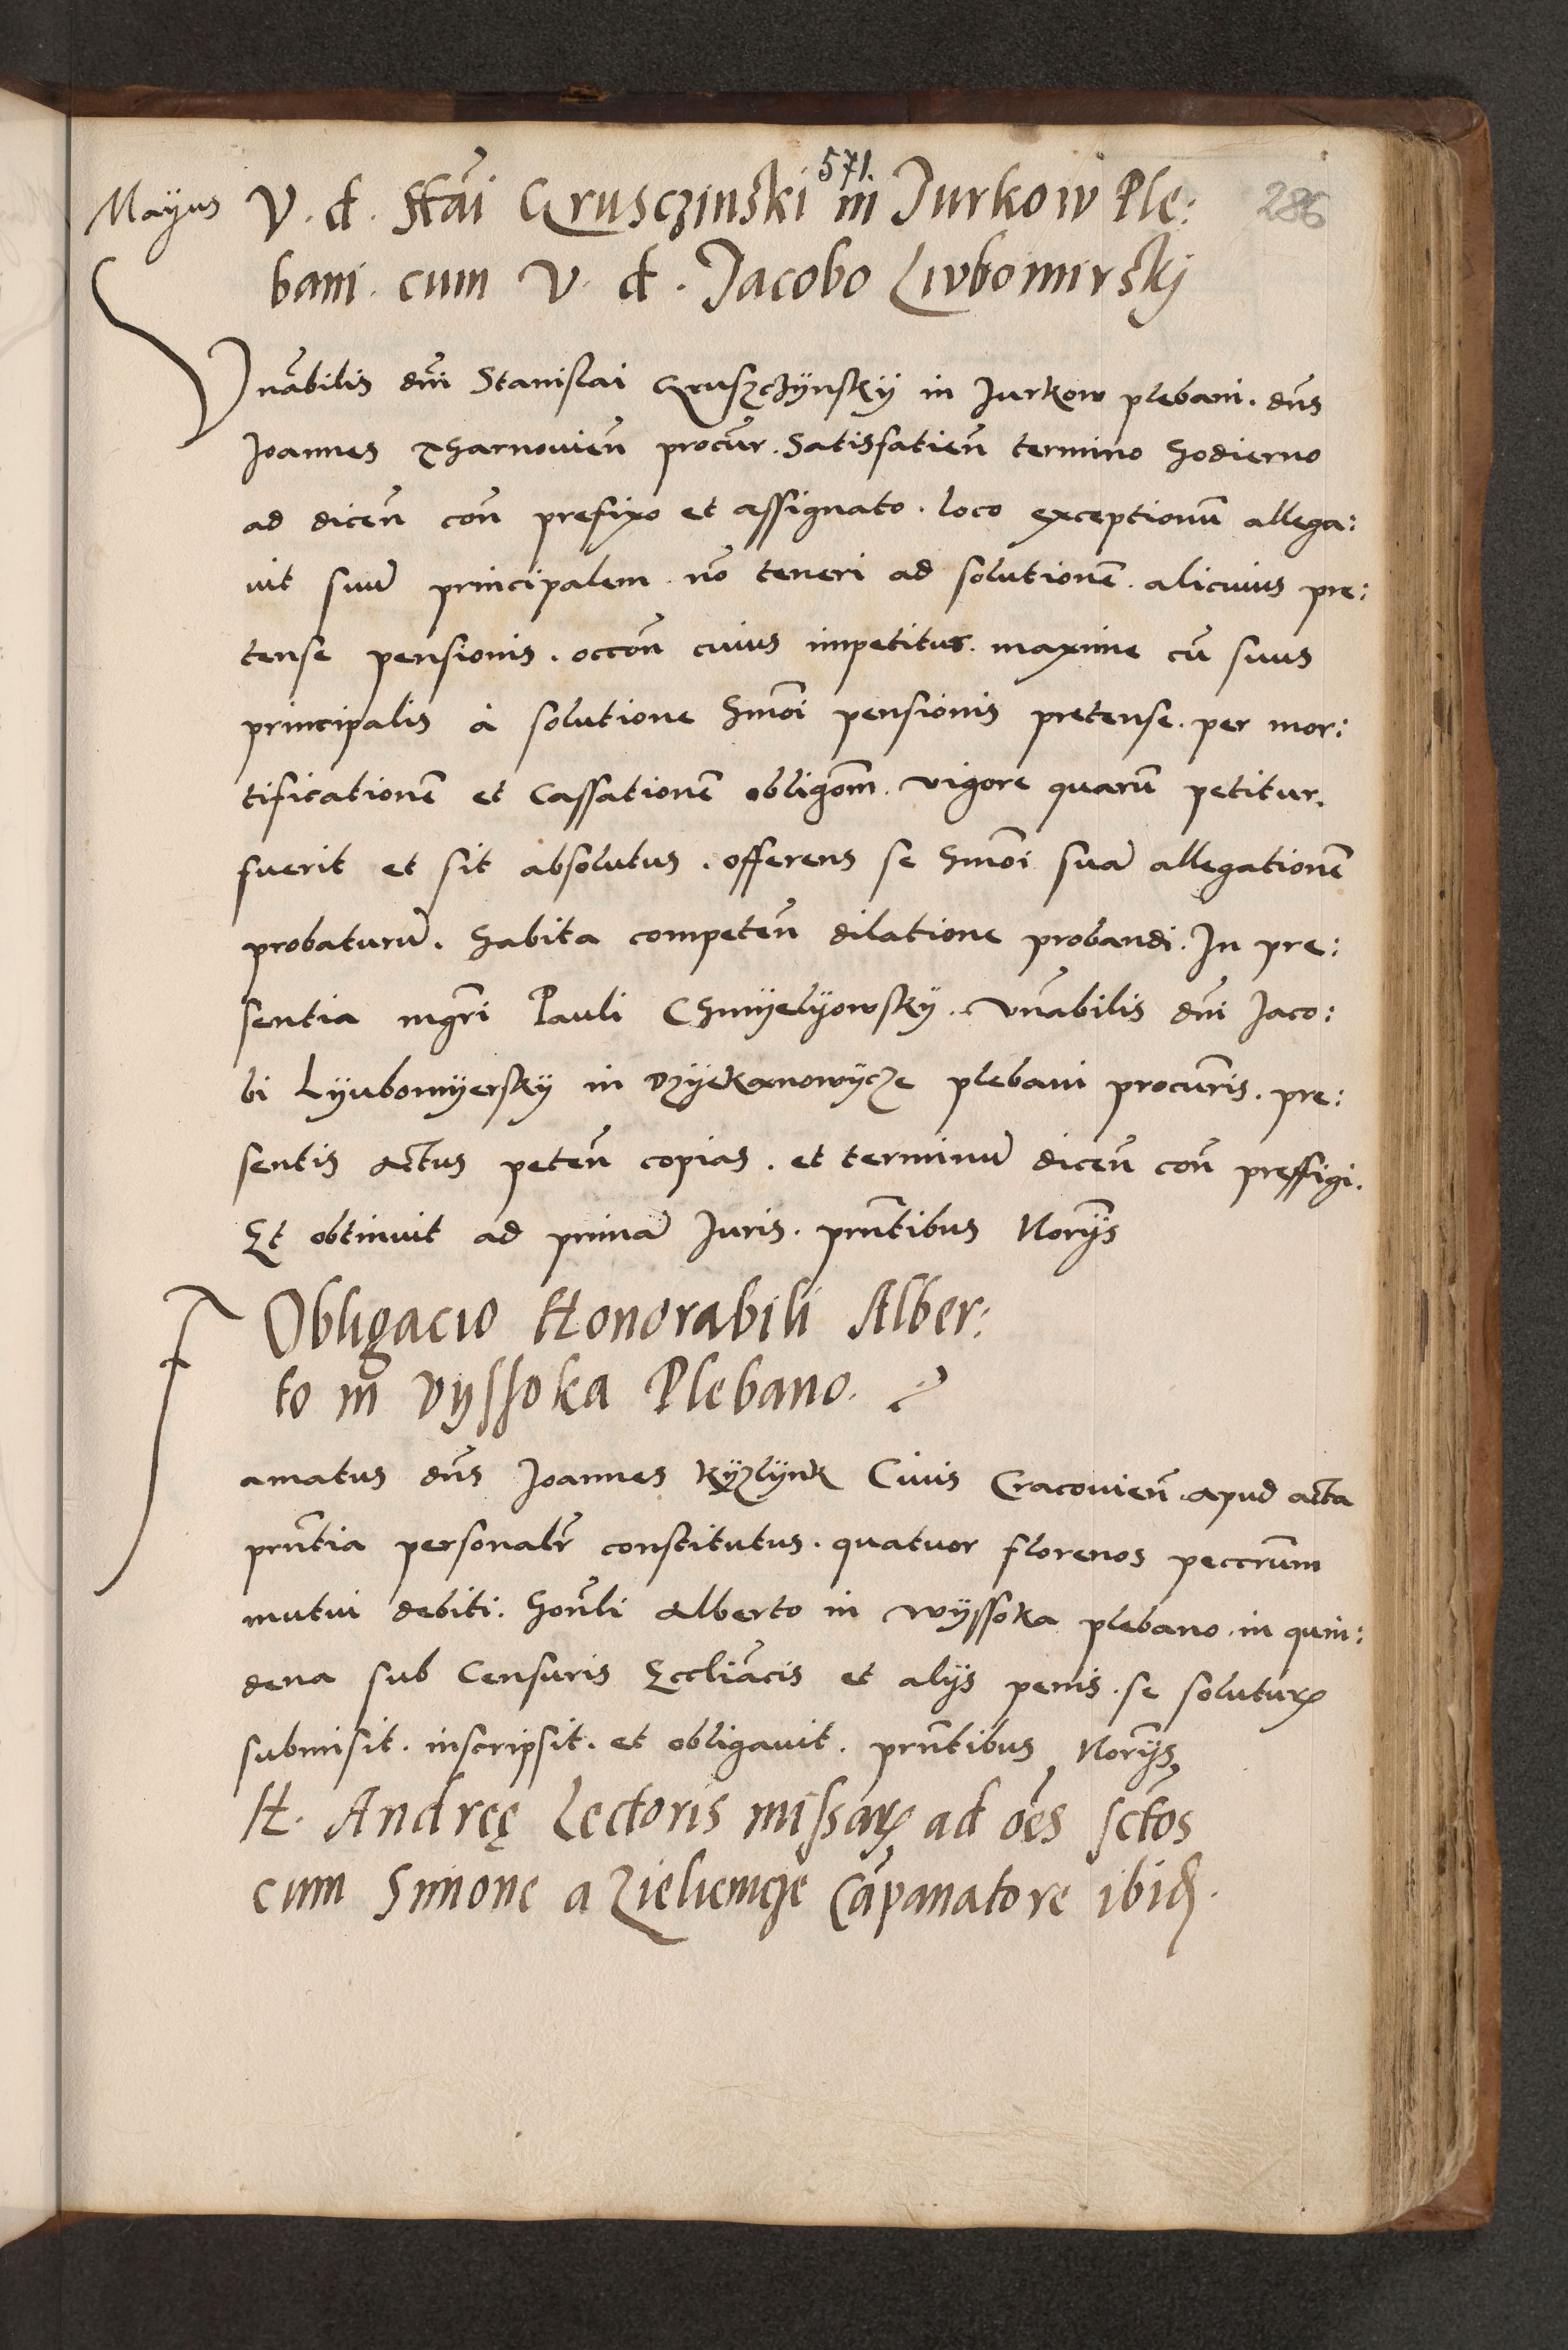 571.
286
Mayus V. d. Stãi Grusczinski in Jurkow Ple:
bani. cum V. d. Jacobo Lubomirskj
Vnãbilis dñi Stanislai Gruszczÿnskÿ in Jurkow plebani. dñs
Joannes Tharnovieñ procur̃. Satisfatieñ termino hodierno
ad diceñ coñ prefixo et assignato. loco exceptionũ allega:
vit suũ principalem. nõ teneri ad solutionẽ. alicuius pre:
tense pensionis. occoñ cuius impetitur. maxime cũ suus
principalis à solutione hmõi pensionis pretense. per mor:
tificationẽ et Cassationẽ obligõm. vigore quarũ petitur.
fuerit et sit absolutus. offerens se hmõi suã allegationẽ
probaturũ. habita competeñ dilatione probandi. In pre:
sentia mgr̃i Pauli Chmÿelÿowskÿ. vnãbilis dñi Jaco:
bi Lÿubomÿerskÿ in Dzÿekanowÿcze plebani procur̃is. pre:
sentis actus peteñ copias. et terminũ diceñ coñ preffigi.
Et obtinuit ad primã Juris. prñtibus Nor̃ÿs
Obligacio Honorabili Alber:
to in Vyssoka Plebano.
Famatus dñs Joannes Kÿzlynk Civis Cracovieñ. apud acta
prñtia personalr̃ constitutus. quatuor florenos peccr̃um
mutui debiti. honl̃i Alberto in Wÿssoka plebano. in quin:
dena sub Censuris Eccliãcis et alÿs penis. se soluturꝝ
submisit. inscripsit. et obligavit. prñtibus Nor̃ÿs
H. Andreę Lectoris missaꝝ ad oẽs sctõs
cum Simone a Zieliemcze Cãpanatore ibiđ.